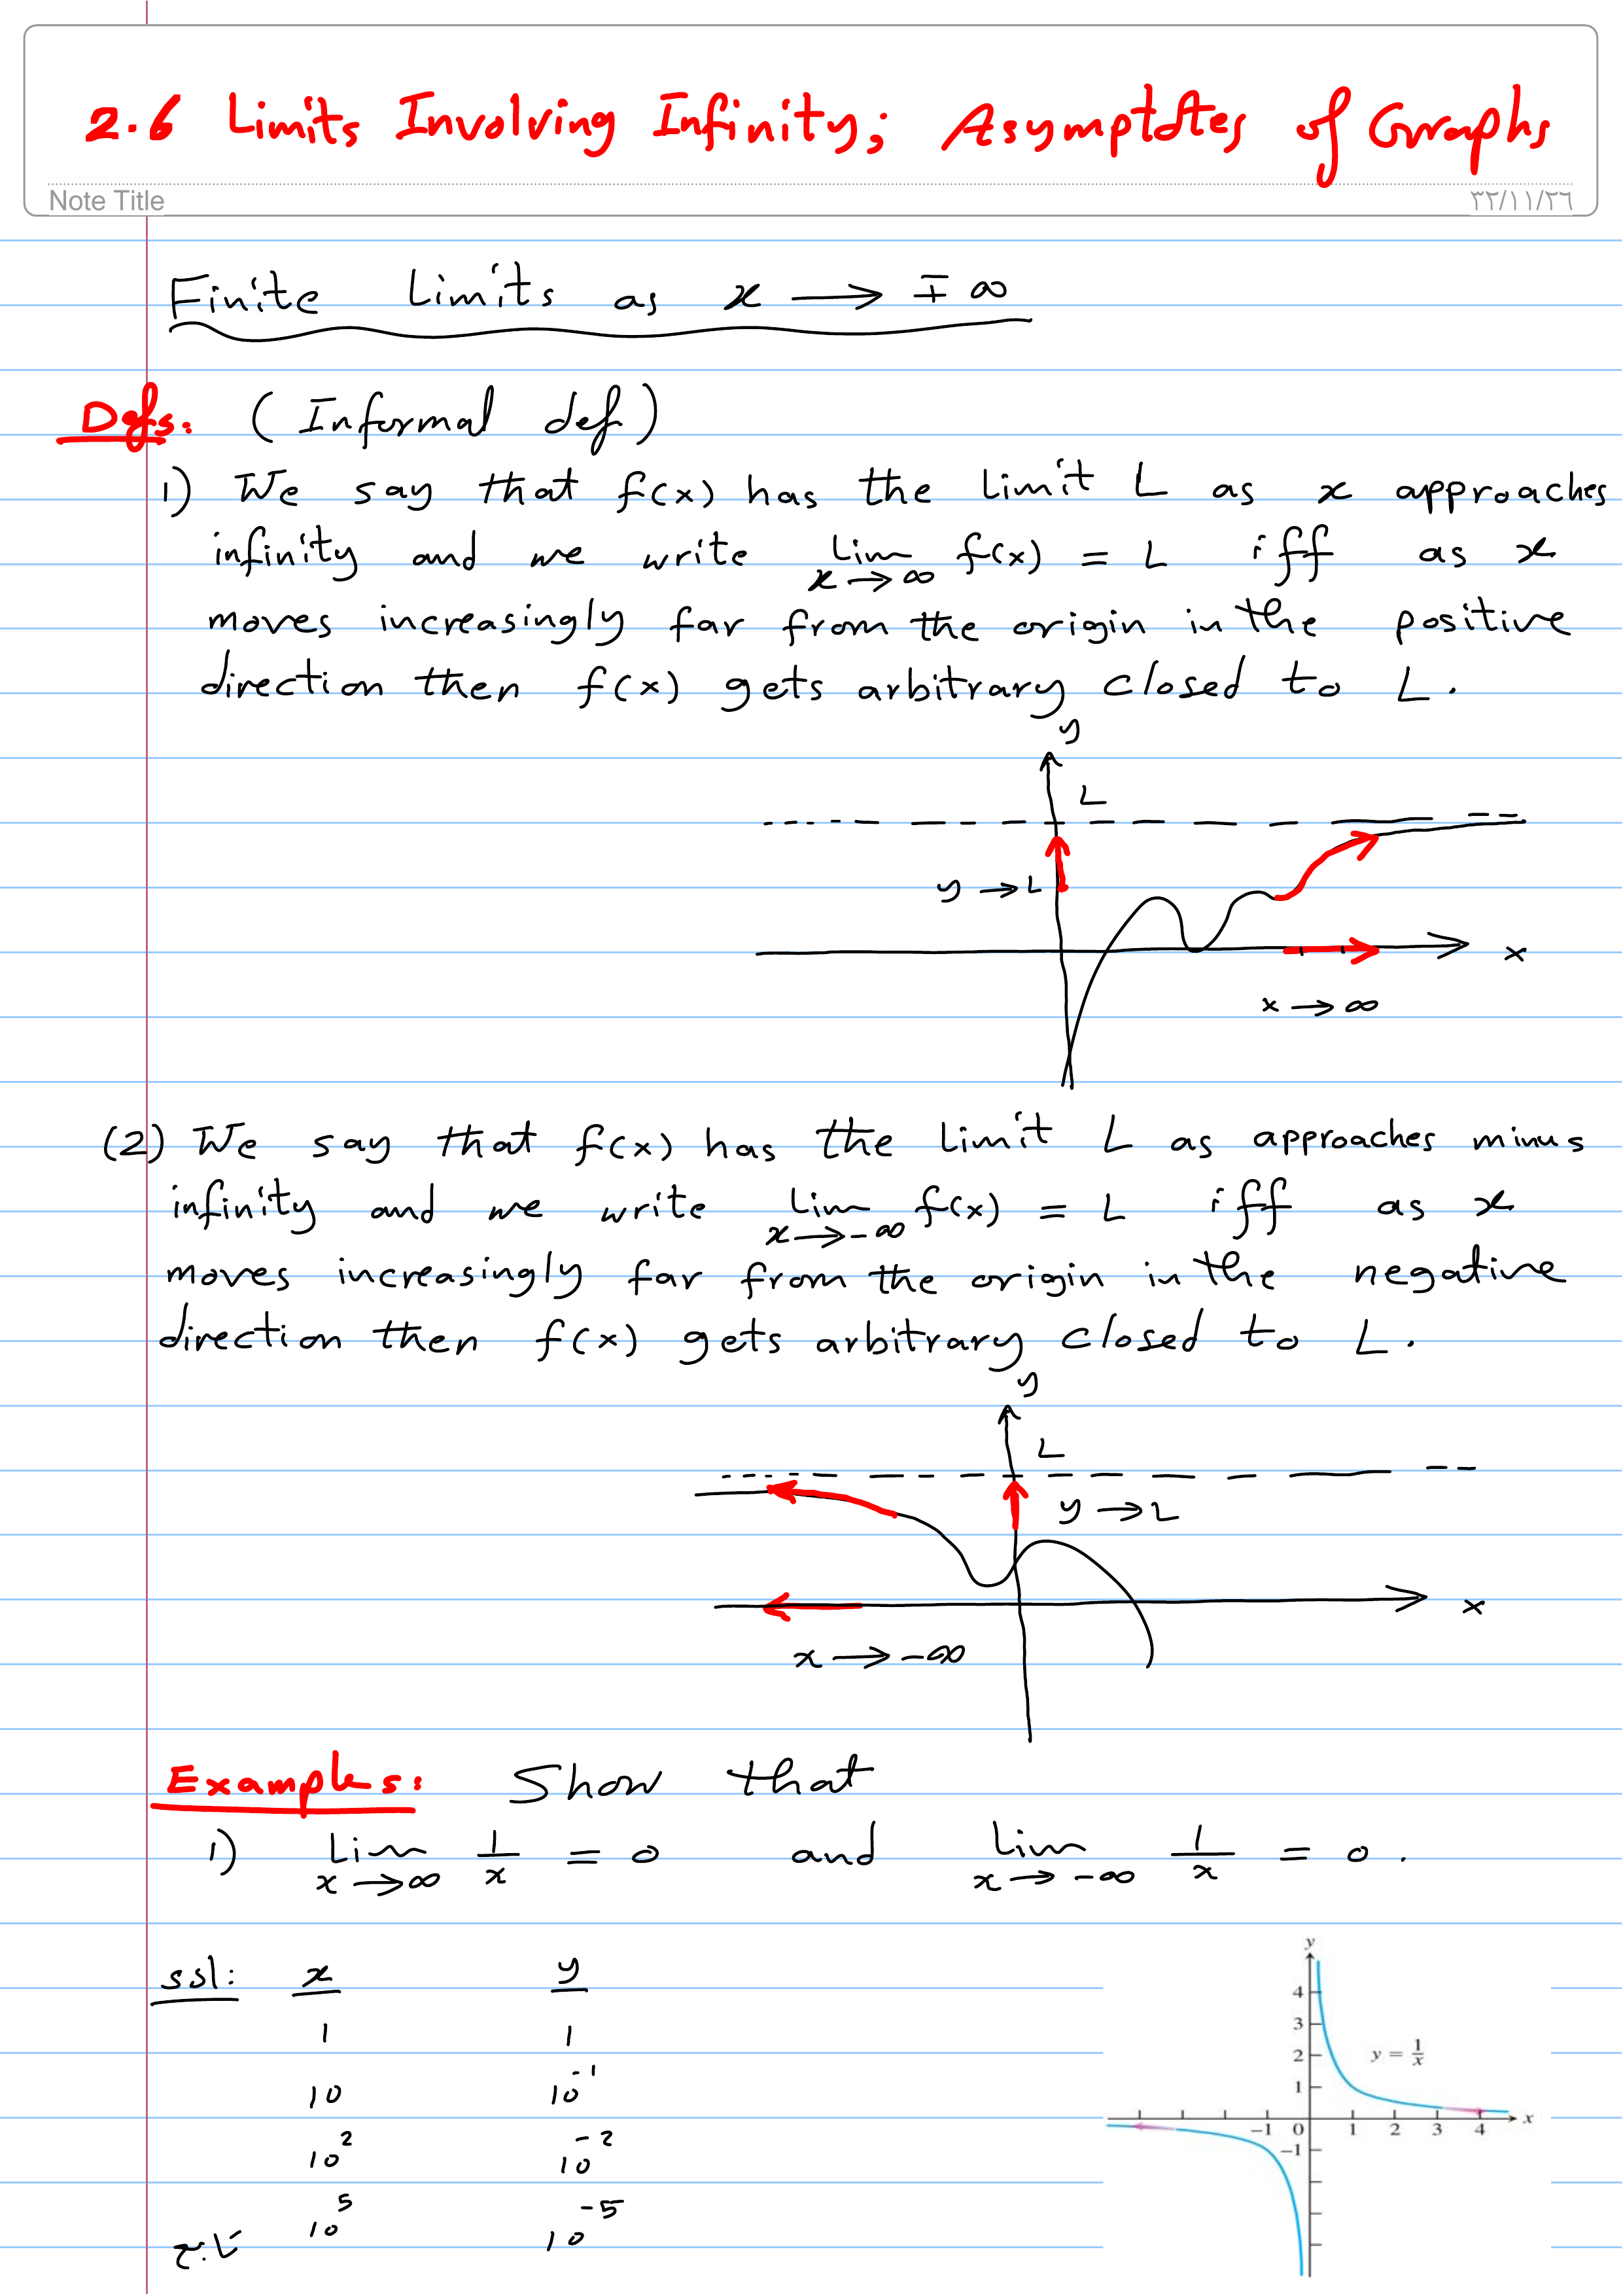 2.6 Limits Involving Infinity; Asymptotes of Graphs
Note Title
٣٢/١١/٢٦
Finite Limits as x → ∓ ∞
Defs. (Informal def)
1) We say that f(x) has the limit L as x approaches
infinity and we write lim x→∞ f(x) = L iff as x
moves increasingly far from the origin in the positive
direction then f(x) gets arbitrary closed to L.
y
L
y → L
x
x → ∞
(2) We say that f(x) has the limit L as approaches minus
infinity and we write lim x→-∞ f(x) = L iff as x
moves increasingly far from the origin in the negative
direction then f(x) gets arbitrary closed to L.
y
L
y → L
x
x → -∞
Examples: Show that
1) lim x→∞ 1/x = 0 and lim x→-∞ 1/x = 0.
sol: x y
1 1
10 10^-1
10^2 10^-2
10^5 10^-5
تابع
y
4
3
2
1
y = 1/x
-1 0 1 2 3 4 x
-1